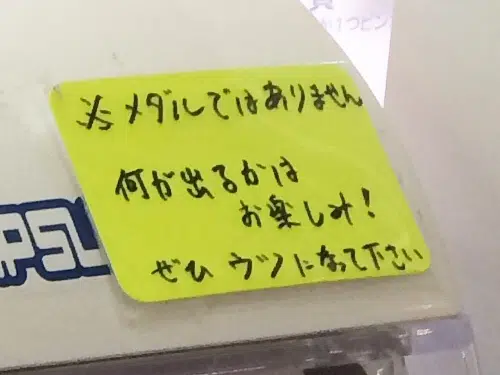 ※メダルではありません
何が出るかは
お楽しみ!
ぜひ ウツになって下さい